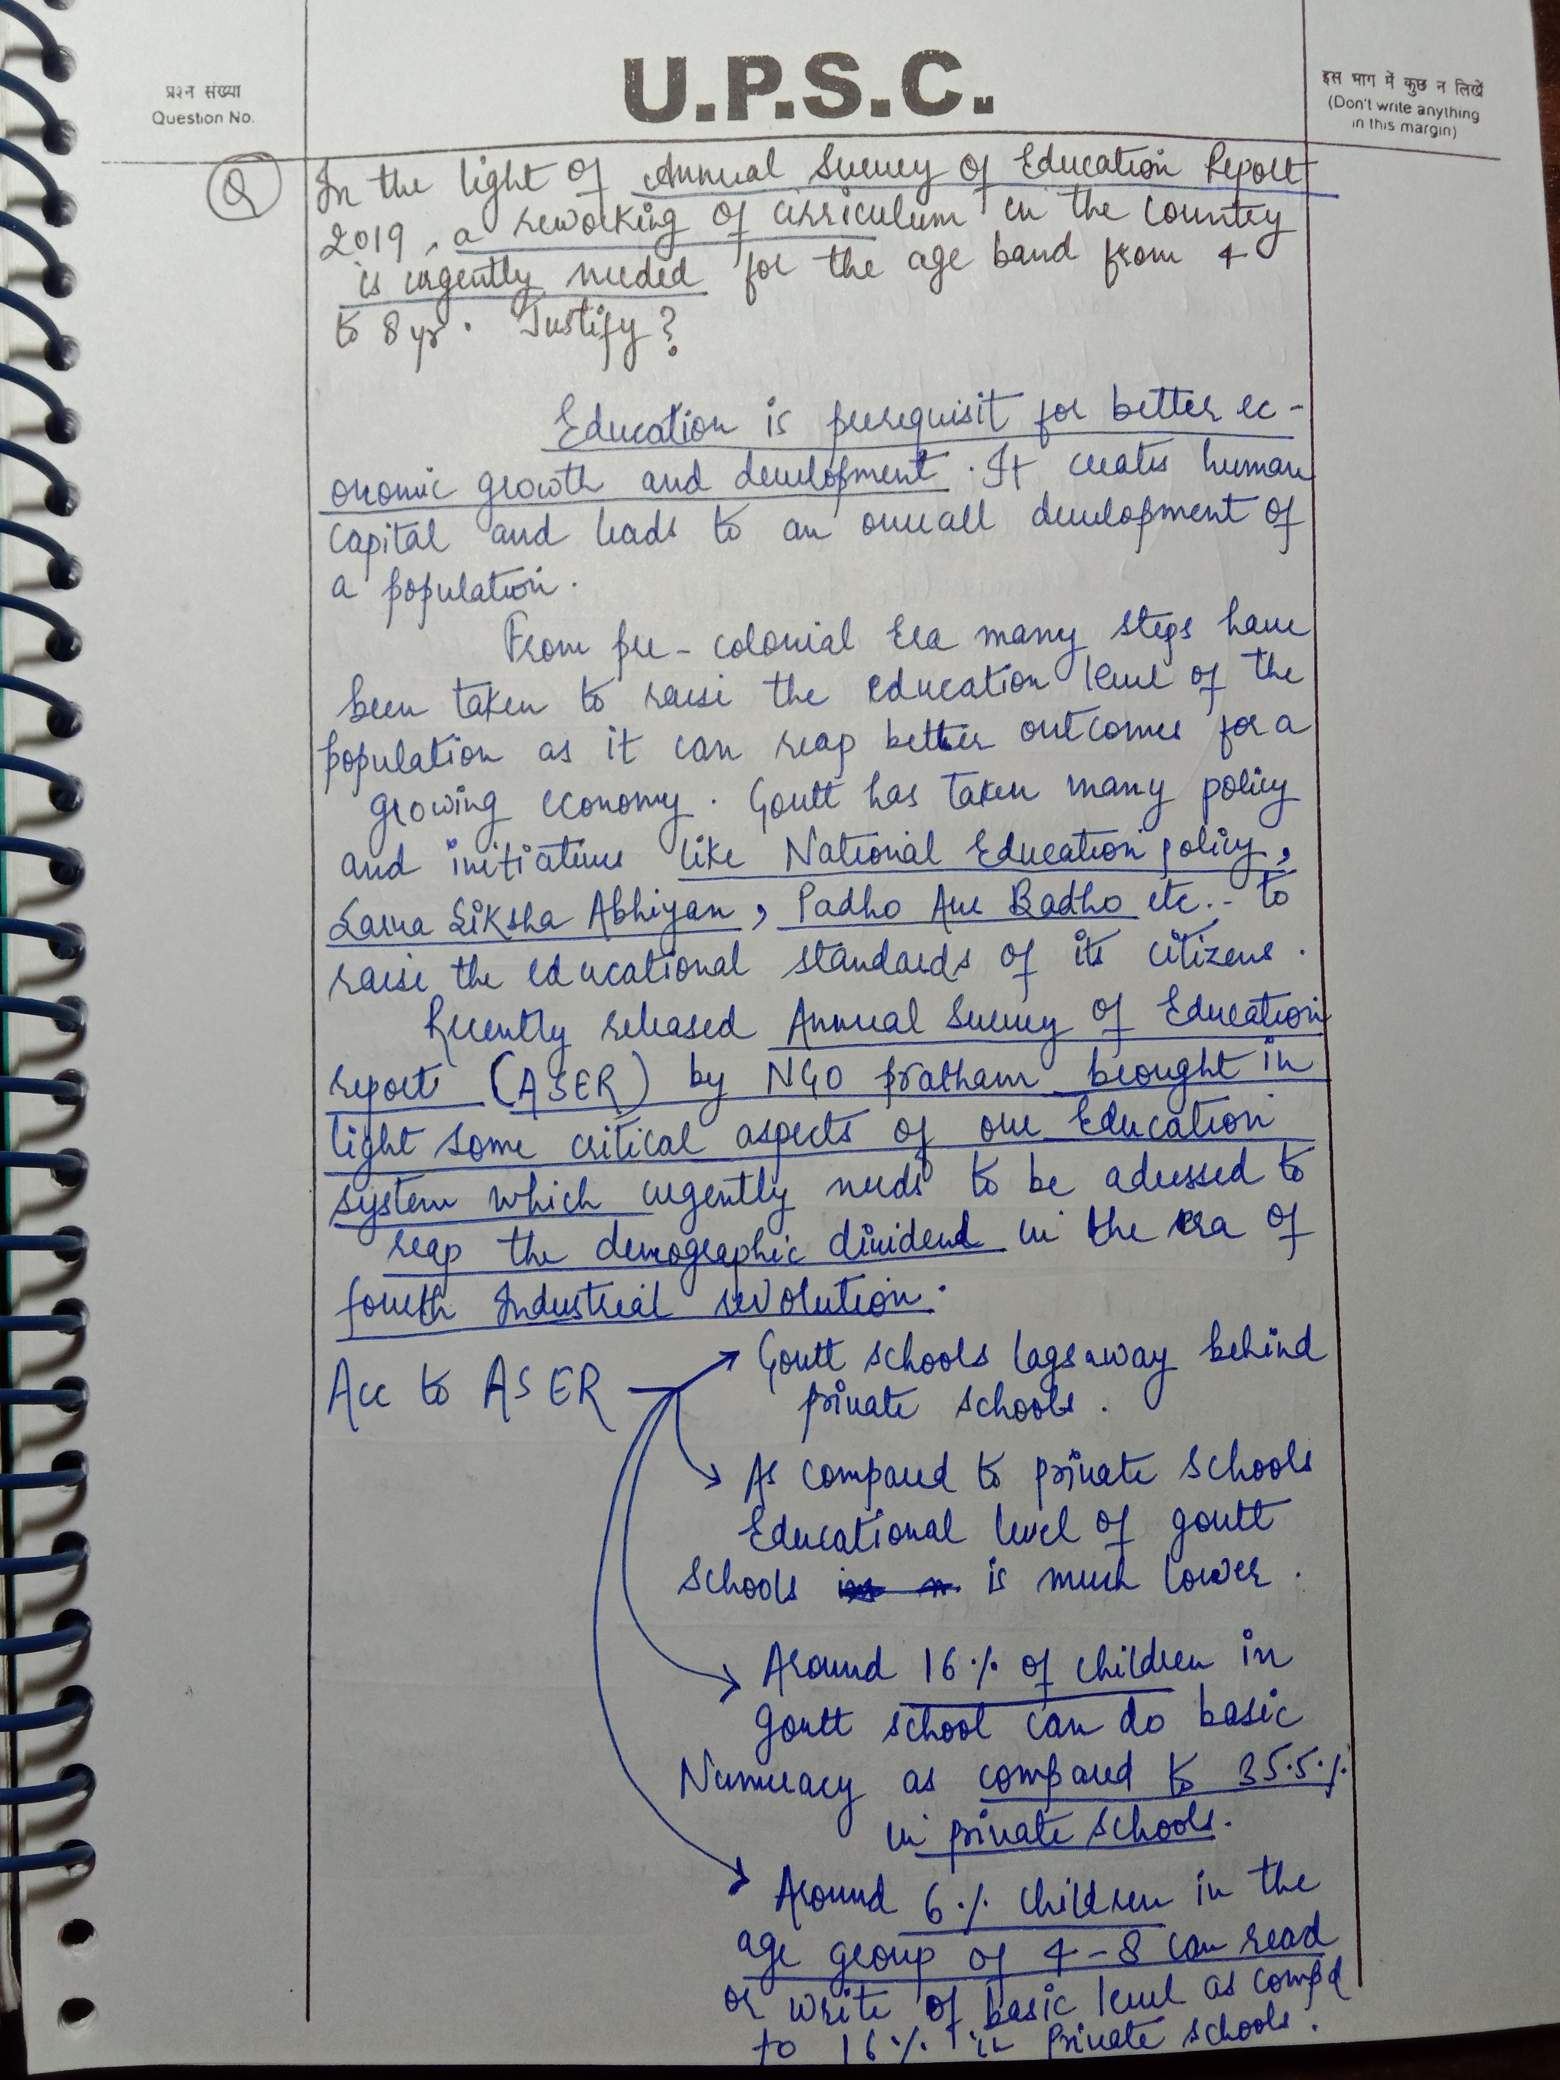 प्रश्न संख्या
Question No.
U.P.S.C.
इस भाग में कुछ न लिखें
(Don't write anything
in this margin)
Q
In the light of Annual Survey of Education Report
2019, a reworking of cirriculum in the country
is urgently needed for the age band from 4
to 8 yr. Justify?
Education is prerequisit for better ec-
onomic growth and development. It creates human
capital and leads to an overall development of
a population.
From pre-colonial Era many steps have
been taken to raise the education level of the
population as it can reap better outcomes for a
growing economy. Govtt has taken many policy
and initiatives like National Education policy,
Sarva Siksha Abhiyan, Padho Aur Badho etc.. to
raise the educational standards of its citizens.
Recently released Annual Survey of Education
report (ASER) by NGO Pratham brought in
light some critical aspects of our Education
system which urgently needs to be adressed to
reap the demographic dividend in the era of
fourth Industrial revolution.
Acc to ASER
Govtt schools lags away behind
private schools.
As compared to private schools
Educational level of govtt
schools is much lower.
Around 16% of children in
govtt school can do basic
Numeracy as compared to 35.5%
in private schools.
Around 6% children in the
age group of 4-8 can read
or write of basic level as comp'd
to 16% in private schools.